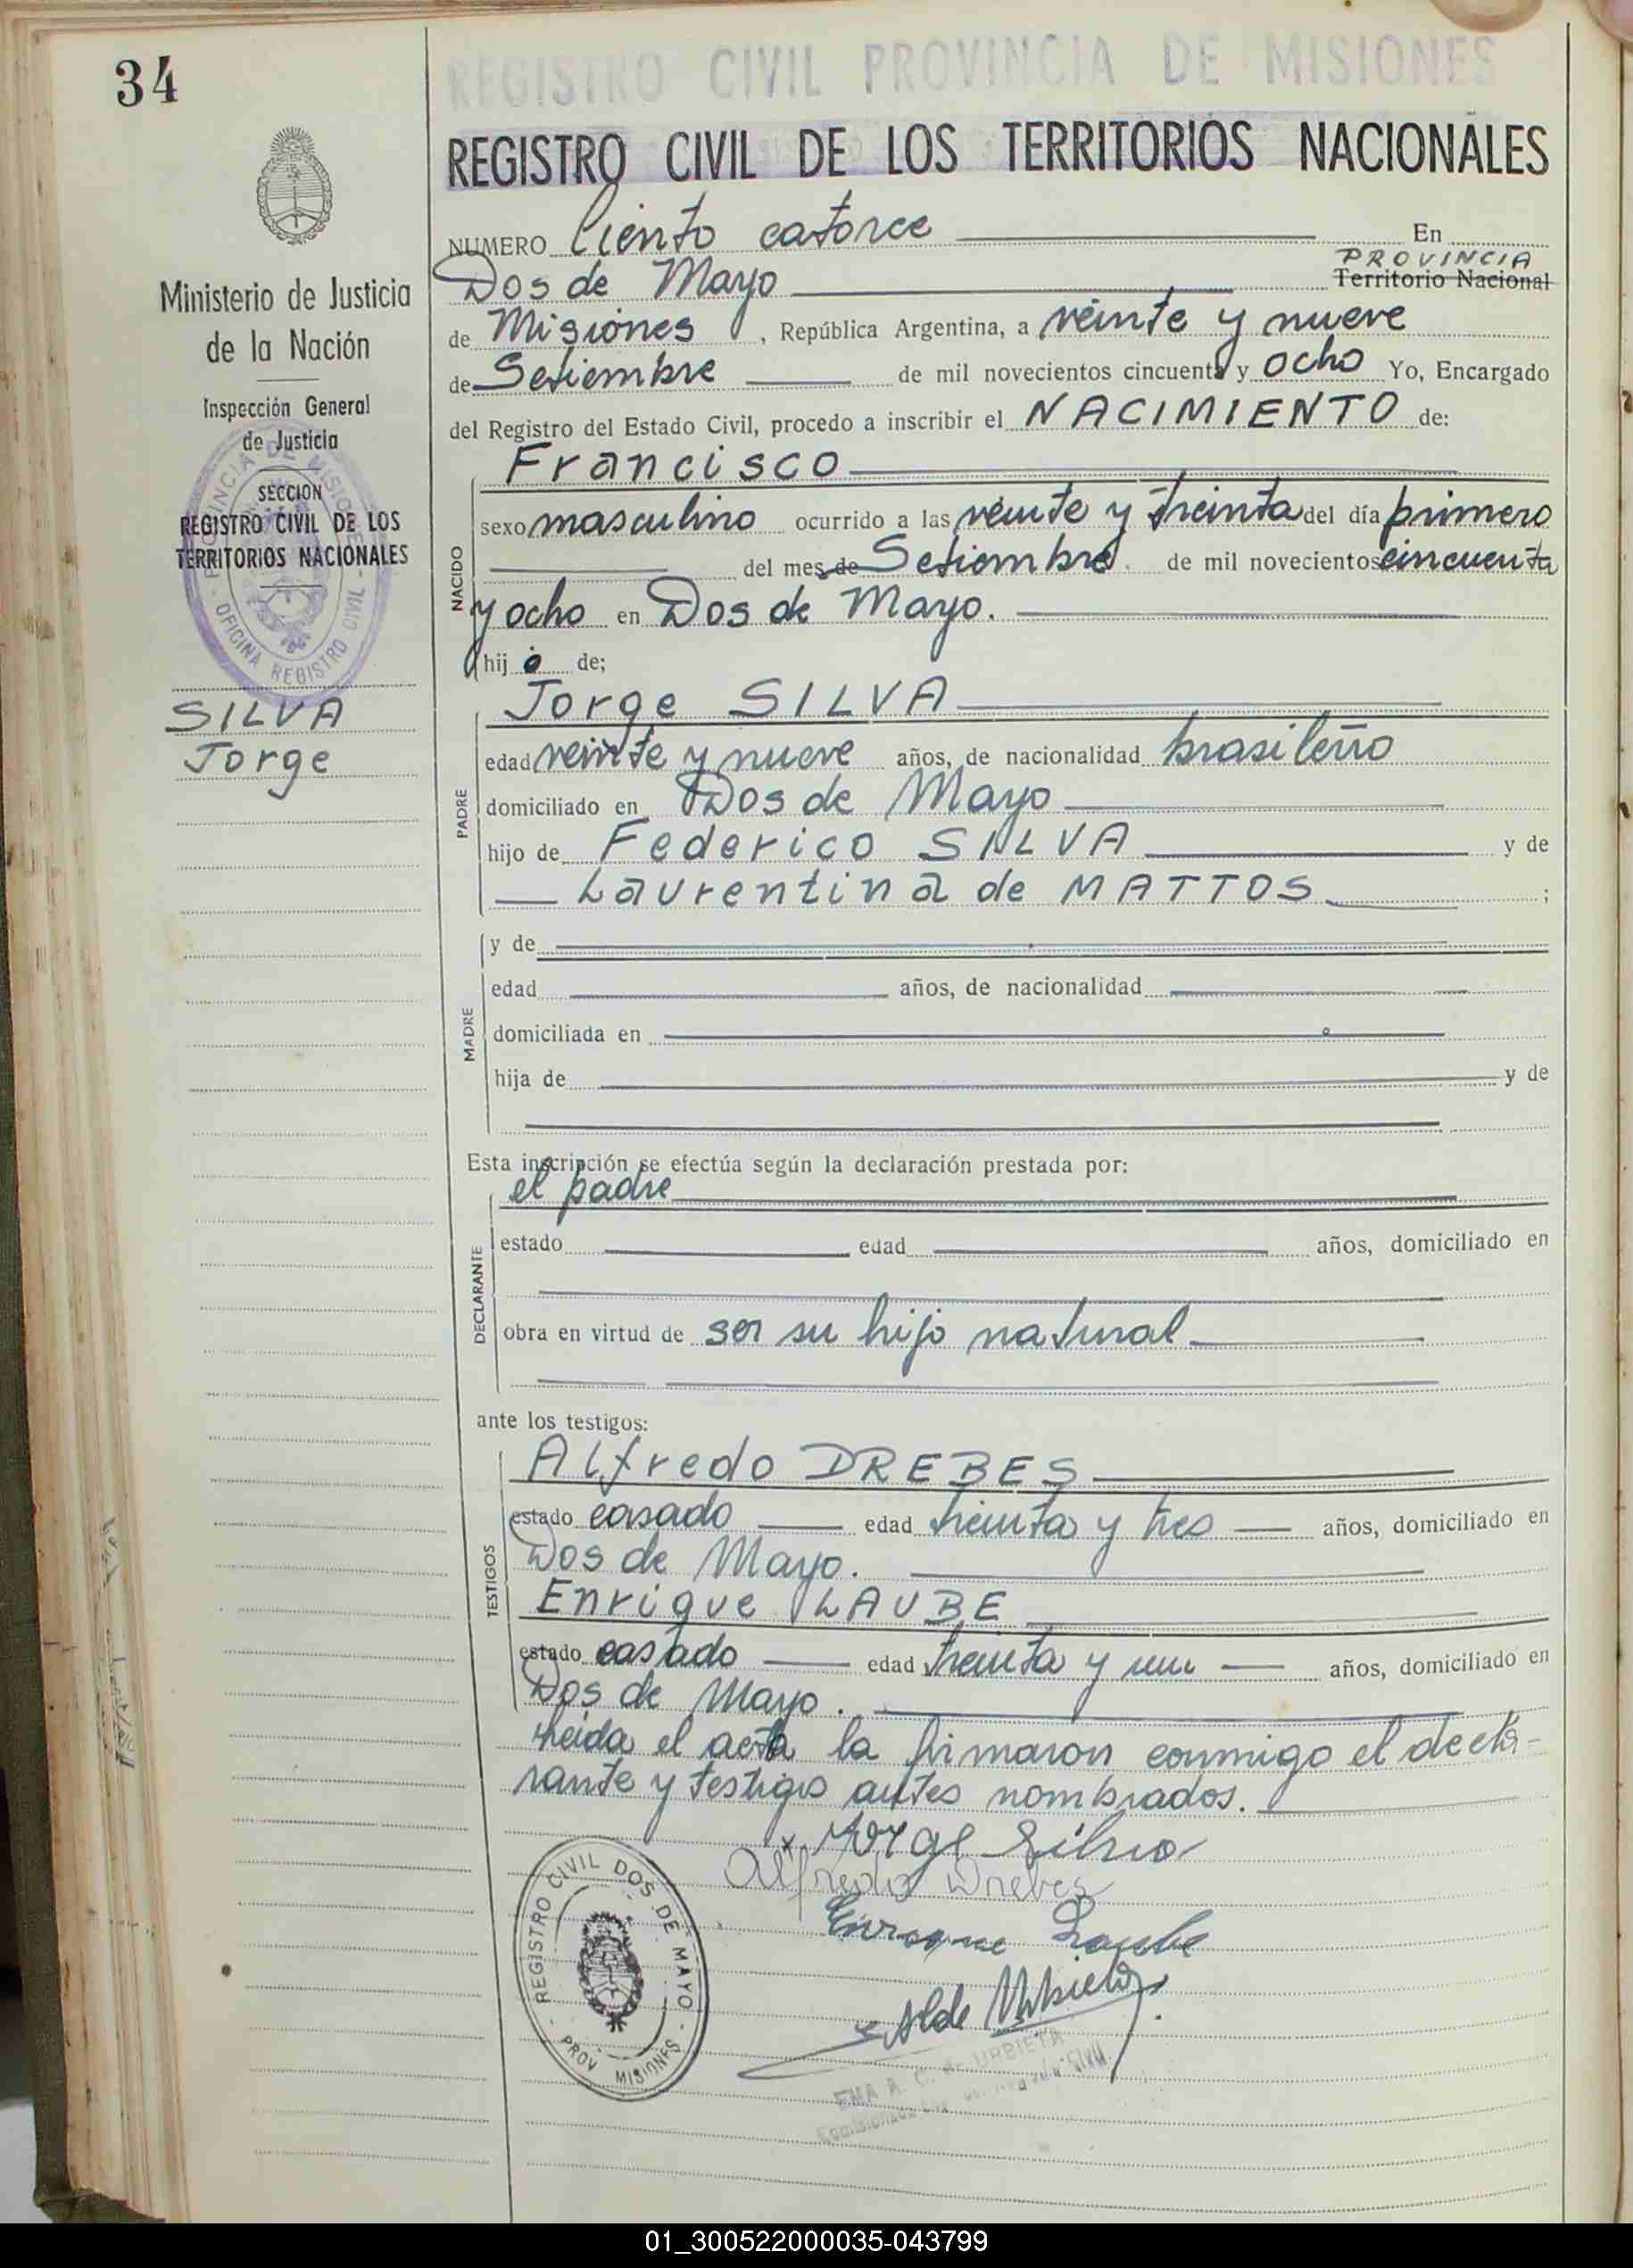 34
REGISTRO CIVIL PROVINCIA DE MISIONES
REGISTRO CIVIL DE LOS TERRITORIOS NACIONALES
Ministerio de Justicia
de la Nación
Inspección General
de Justicia
SECCION
REGISTRO CIVIL DE LOS
TERRITORIOS NACIONALES
PROVINCIA DE MISIONES - OFICINA REGISTRO CIVIL -
SILVA
Jorge
NUMERO Ciento catorce En
Dos de Mayo PROVINCIA Territorio Nacional
de Misiones, República Argentina, a veinte y nueve
de Setiembre de mil novecientos cincuenta y ocho Yo, Encargado
del Registro del Estado Civil, procedo a inscribir el NACIMIENTO de:
NACIDO
Francisco
sexo masculino ocurrido a las veinte y treinta del día primero
del mes de Setiembre. de mil novecientos cincuenta
y ocho en Dos de Mayo.
hijo de;
PADRE
Jorge SILVA
edad veinte y nueve años, de nacionalidad brasileño
domiciliado en Dos de Mayo
hijo de Federico SILVA y de
Laurentina de MATTOS ;
MADRE
y de
edad años, de nacionalidad
domiciliada en
hija de y de
Esta inscripción se efectúa según la declaración prestada por:
DECLARANTE
el padre
estado edad años, domiciliado en
obra en virtud de ser su hijo natural
ante los testigos:
TESTIGOS
Alfredo DREBES
estado casado edad treinta y tres años, domiciliado en
Dos de Mayo.
Enrique LAUBE
estado casado edad treinta y un años, domiciliado en
Dos de Mayo.
Leida el acta la firmaron conmigo el decla-
rante y testigos antes nombrados.
x Jorge Silva
Alfredo Drebes
Enrique Laube
REGISTRO CIVIL DOS DE MAYO - PROV MISIONES -
URBIETA
01_300522000035-043799